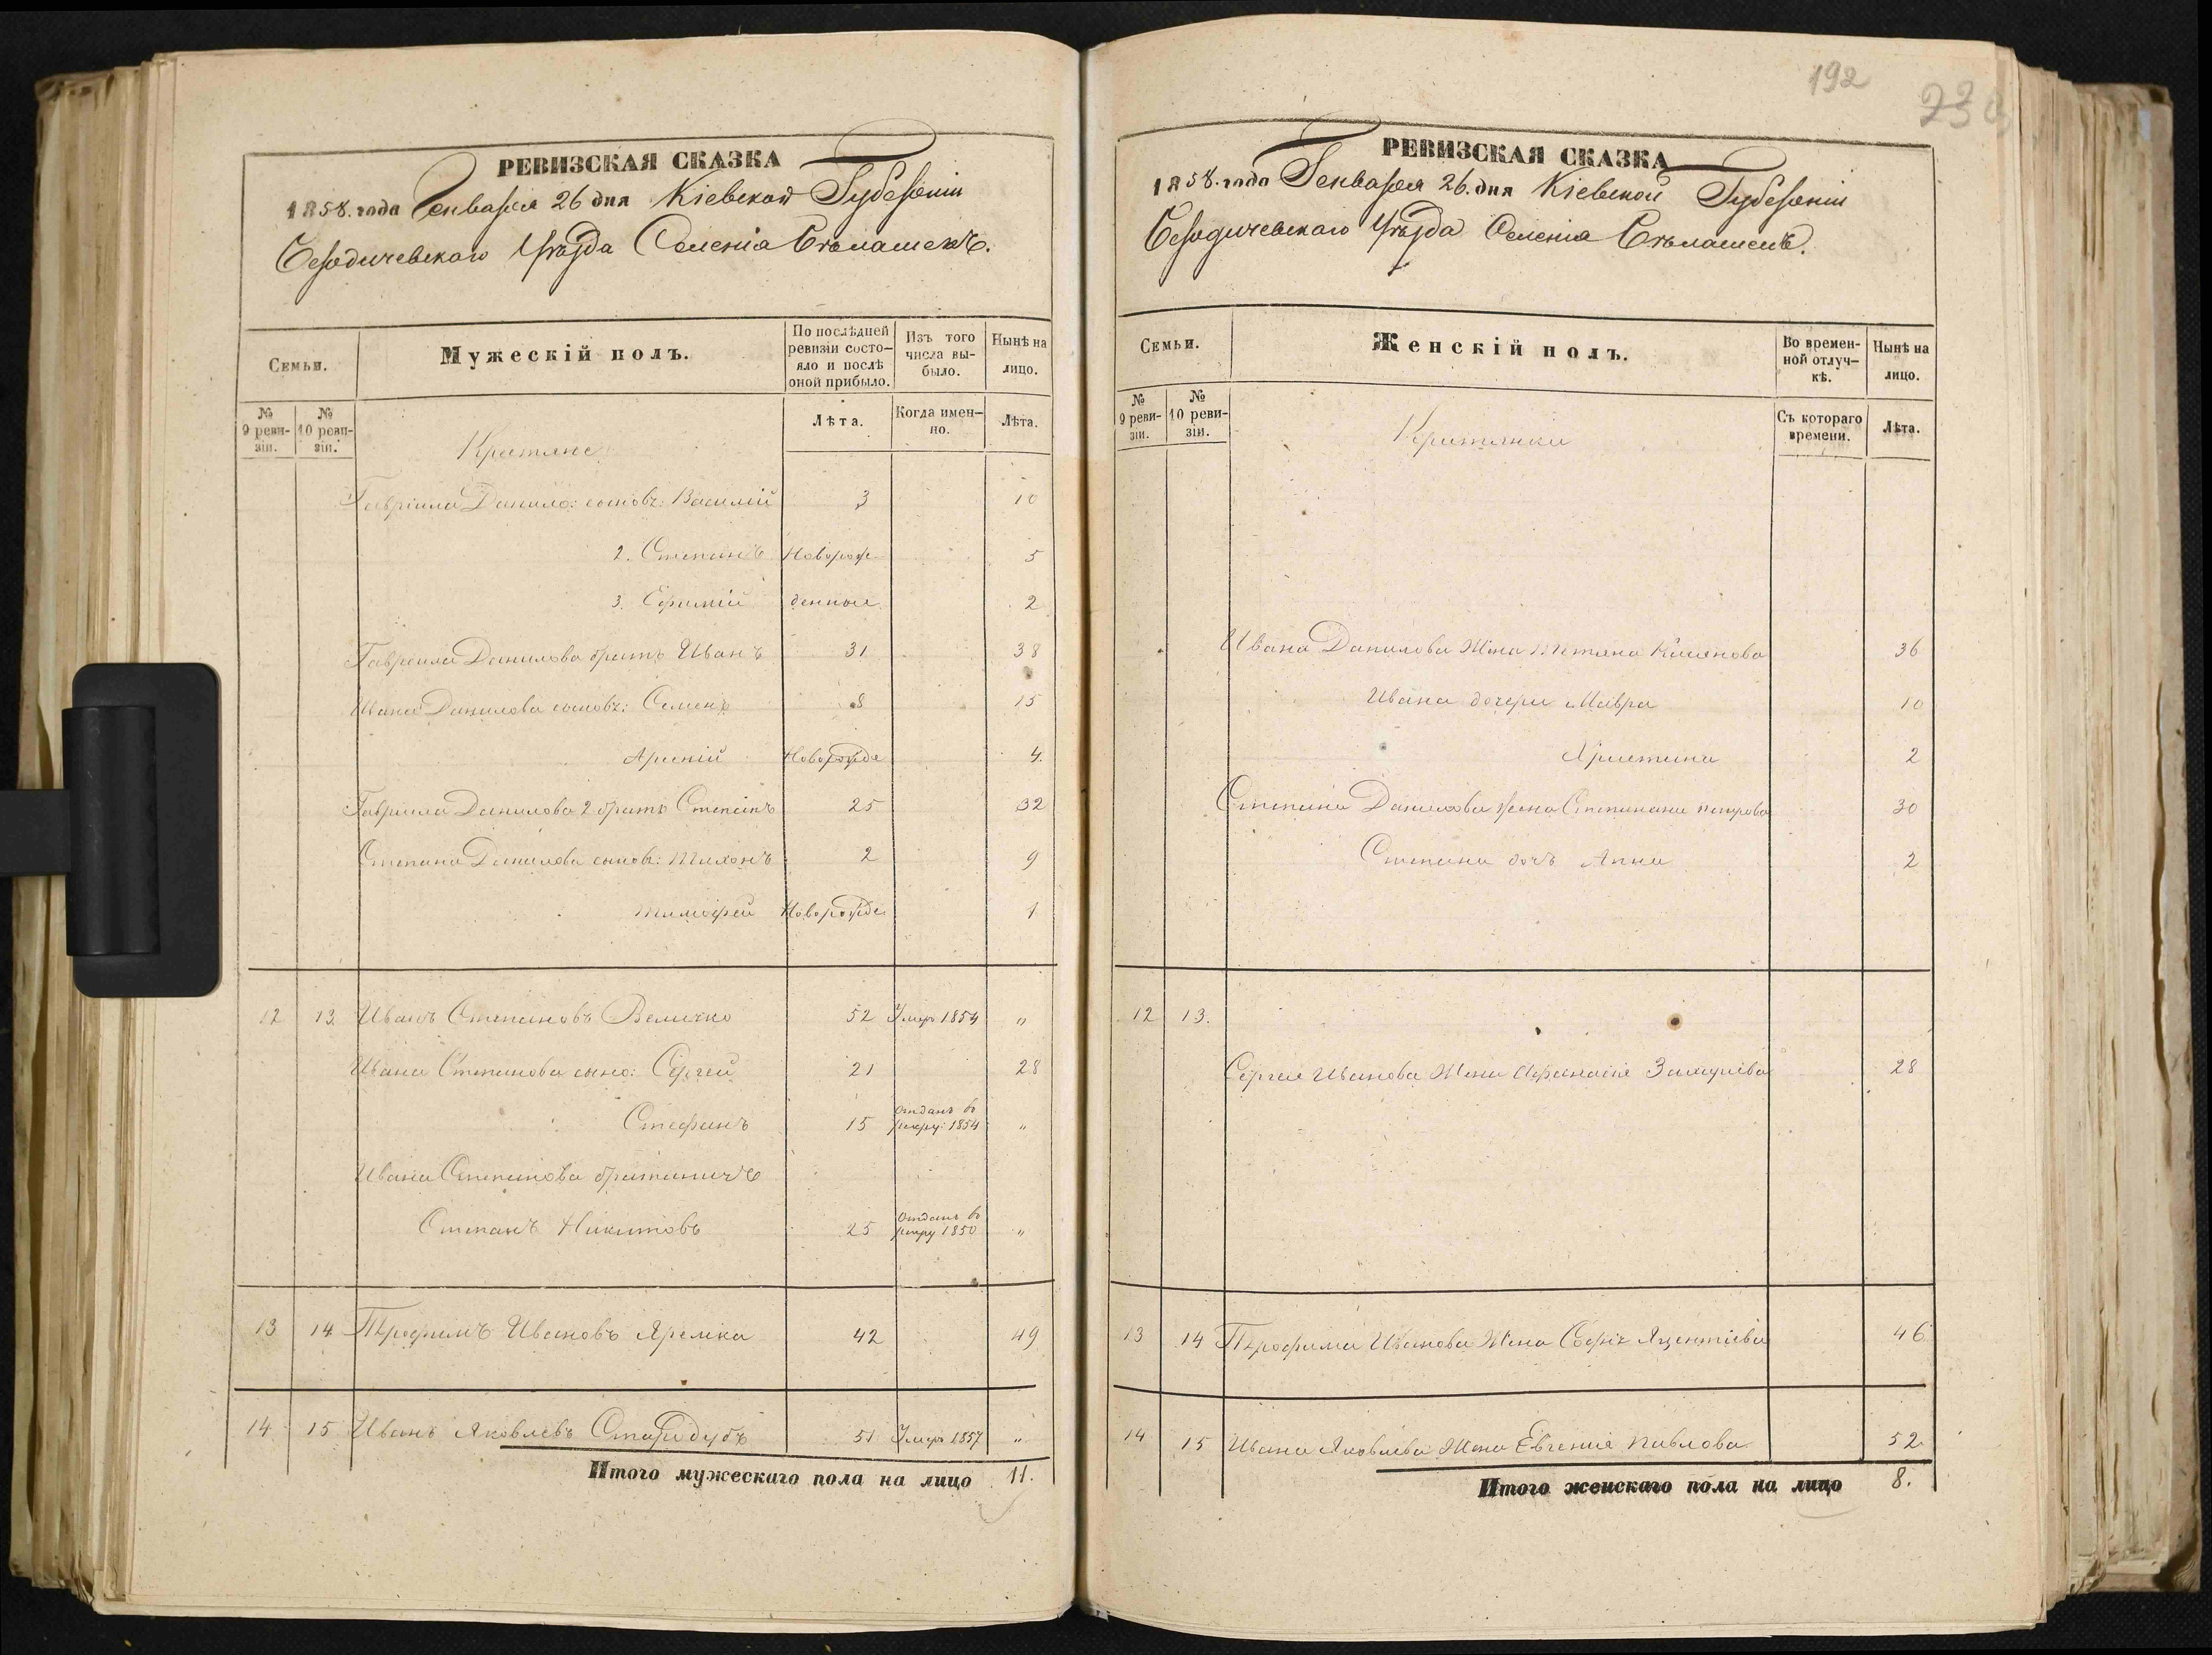 РЕВИЗСКАЯ СКАЗКА
1858. года Генваря 26 дня Кіевской Губерніи
Бердичевскаго Уѣзда Селенія
Семьи.
Мужескій полъ.
По послѣдней ревизіи состояло и послѣ оной прибыло.
Изъ того числа выбыло.
Нынѣ на лицо.
№ 9 ревизіи.
№ 10 ревизіи.
Лѣта.
Когда именно.
Лѣта.
Гавріила Данило: сыновъ: Василій 3 10
2. Степанъ Новорож 5
3. Ефимій денные 2
Гавріила Данилова братъ Иванъ 31 38
Ивана Данилова сыновъ: Семенъ 8 15
Арсеній Новорожде 4.
Гавріила Данилова 2 братъ Степанъ 25 32
Степана Данилова сыновъ: Тихонъ 2 9
Тимофей Новорожде 1
12 13. Иванъ Степановъ Величко 52 Умеръ 1854 "
Ивана Степанова сыно: Сергей 21 28
Стефанъ 15 отданъ въ рекру: 1854 "
Ивана Степанова братаничъ
Степанъ Никитовъ 25 отданъ въ рекру 1850 "
13 14 Трофимъ Ивановъ Яремка 42 49
14 15 Иванъ Яковлевъ Стародубъ 51 Умеръ 1857 "
Итого мужескаго пола на лицо 11.
192
РЕВИЗСКАЯ СКАЗКА
1858. года Генваря 26. дня Кіевской Губерніи
Бердичевскаго Уѣзда Селенія
Семьи.
Женскій полъ.
Во временной отлучкѣ.
Нынѣ на лицо.
№ 9 ревизіи.
№ 10 ревизіи.
Съ котораго времени.
Лѣта.
Ивана Данилова Жена Тетяна Касянова 36
Ивана дочери Мавра 10
Христина 2
Степана Данилова жена Степанида петрова 30
Степана дочь Анна 2
12 13.
Сергея Иванова Жена Афанасія 28
13 14 Трофима Иванова Жена Софія 46
14 15 Ивана Яковлева Жена Евгенія Павлова 52
Итого женскаго пола на лицо 8.